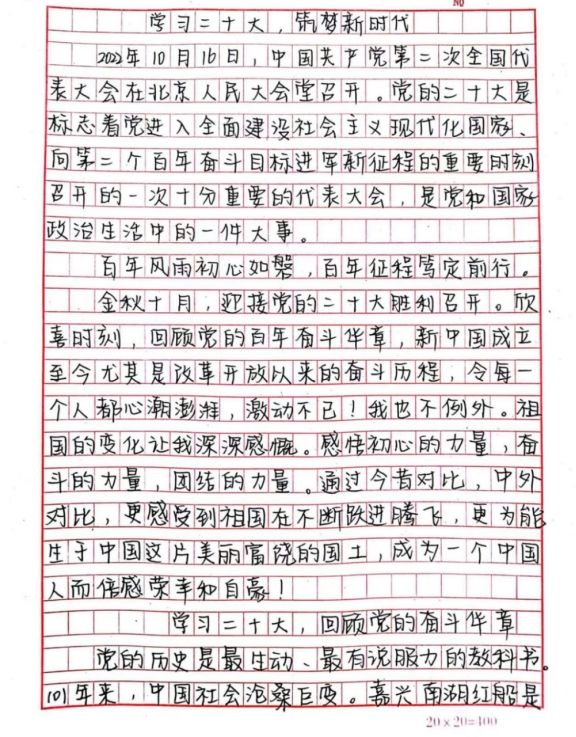 No
学习二十大，筑梦新时代
2022年10月16日，中国共产党第二次全国代
表大会在北京人民大会堂召开。党的二十大是
标志着党进入全面建设社会主义现代化国家、
向第二个百年奋斗目标进军新征程的重要时刻
召开的一次十分重要的代表大会，是党和国家
政治生活中的一件大事。
百年风雨初心如磐，百年征程笃定前行。
金秋十月，迎接党的二十大胜利召开。欣
喜时刻，回顾党的百年奋斗华章，新中国成立
至今尤其是改革开放以来的奋斗历程，令每一
个人都心潮澎湃，激动不已！我也不例外。祖
国的变化让我深深感慨。感悟初心的力量，奋
斗的力量，团结的力量。通过今昔对比，中外
对比，更感受到祖国在不断跃进腾飞，更为能
生于中国这片美丽富饶的国土，成为一个中国
人而倍感荣幸和自豪！
学习二十大，回顾党的奋斗华章
党的历史是最生动、最有说服力的教科书。
101年来，中国社会沧桑巨变。嘉兴南湖红船是
20×20=400